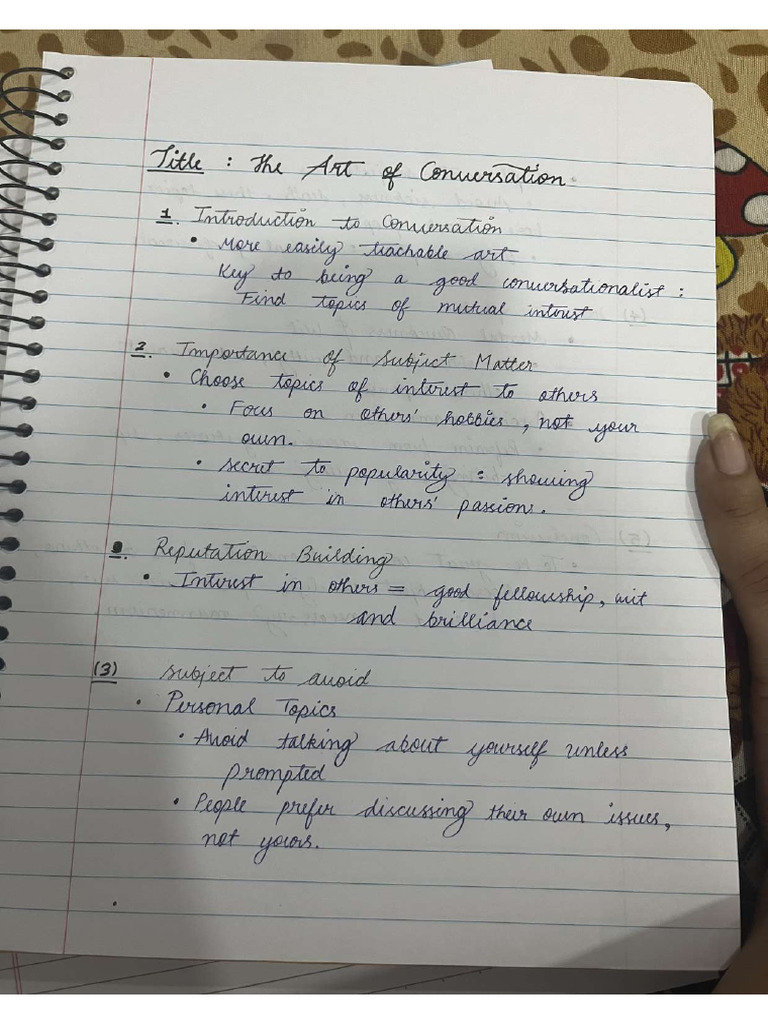 Title : The Art of Conversation
1. Introduction to Conversation
• More easily teachable art
Key to being a good conversationalist :
Find topics of mutual intrest
2. Importance of Subject Matter
• Choose topics of interest to others
• Focus on others' hobbies, not your
own.
• Secret to popularity : showing
interest in others' passions.
Reputation Building
• Interest in others = good fellowship, wit
and brilliance
(3) Subject to avoid
• Personal Topics
• Avoid talking about yourself unless
prompted
• People prefer discussing their own issues,
not yours.